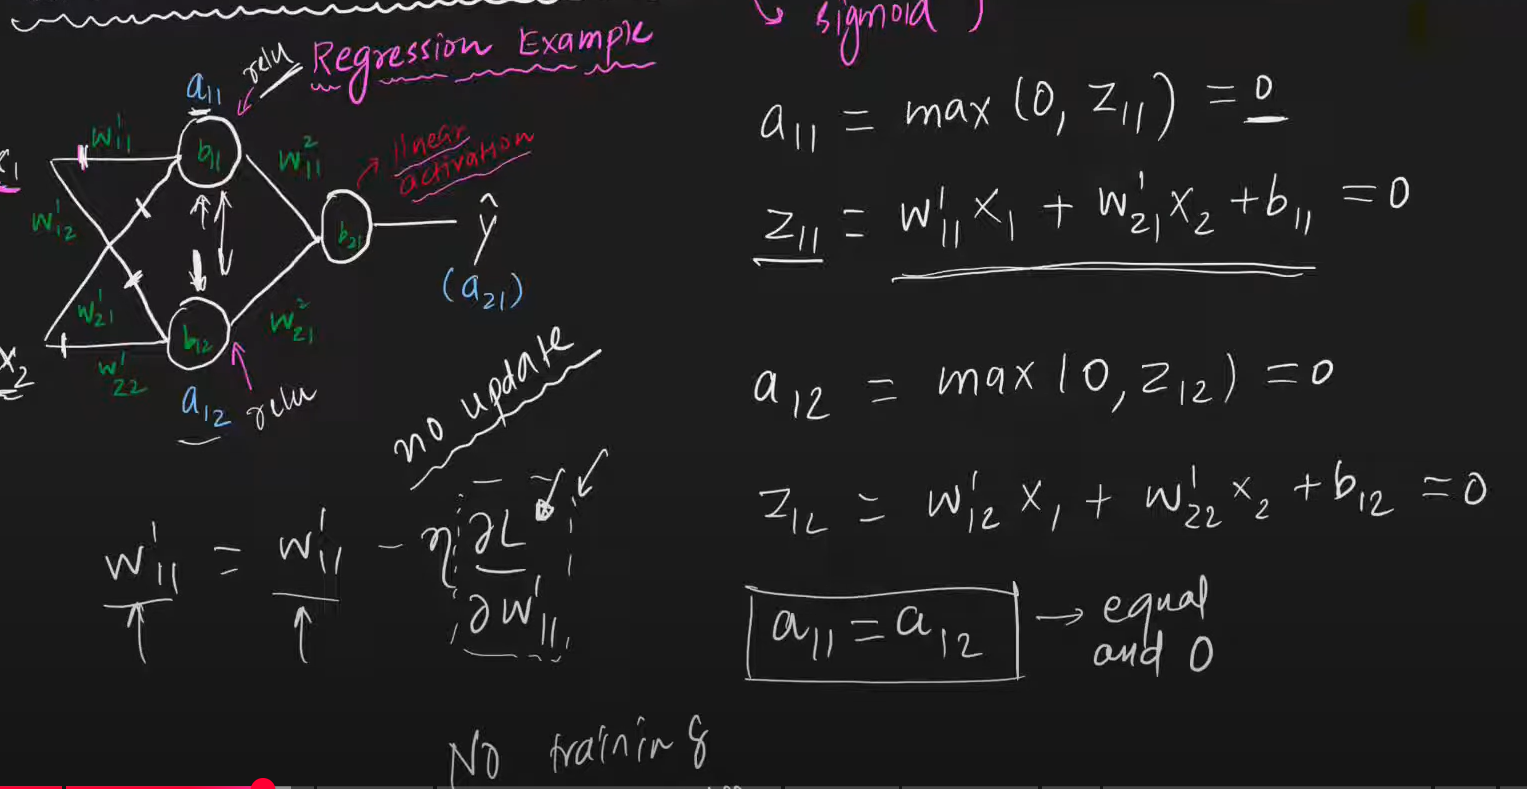 sigmoid )
Regression Example
relu
a₁₁
w¹₁₁
b₁₁
w²₁₁
linear
activation
x₁
w¹₁₂
b₂₁
ŷ
(a₂₁)
w¹₂₁
b₁₂
w²₂₁
x₂
w¹₂₂
a₁₂
relu
no update
w¹₁₁ = w¹₁₁ - η ∂L
∂w¹₁₁
No training
a₁₁ = max (0, z₁₁) = 0
z₁₁ = w¹₁₁ x₁ + w¹₂₁ x₂ + b₁₁ = 0
a₁₂ = max (0, z₁₂) = 0
z₁₂ = w¹₁₂ x₁ + w¹₂₂ x₂ + b₁₂ = 0
a₁₁ = a₁₂ → equal
and 0